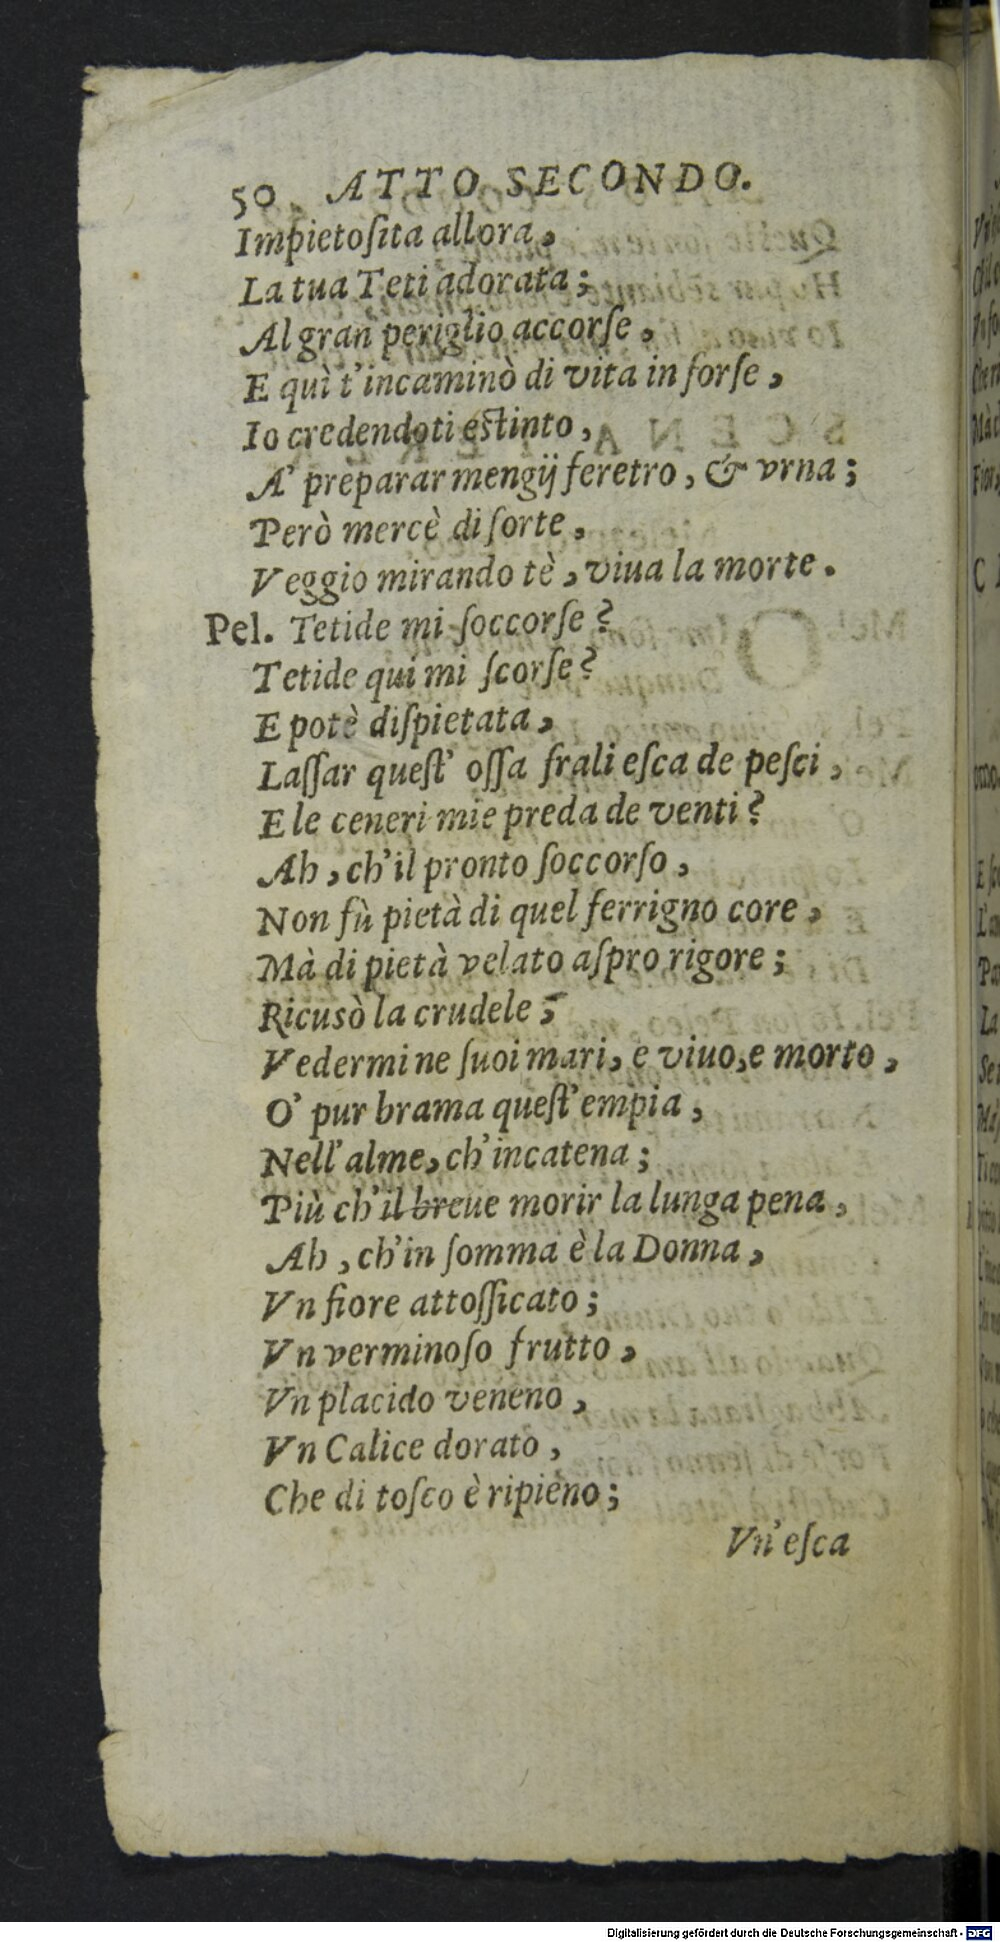 50 ATTO SECONDO.
Impietoſita allora,
La tua Teti adorata;
Al gran periglio accorſe,
E quì t'incaminò di vita in forſe,
Io credendoti estinto,
A' preparar mengij feretro, & vrna;
Però mercè di ſorte,
Veggio mirando tè, viua la morte.
Pel. Tetide mi ſoccorſe?
Tetide qui mi ſcorſe?
E potè diſpietata,
Laſſar queſt' oſſa frali eſca de peſci,
E le ceneri mie preda de venti?
Ah, ch'il pronto ſoccorſo,
Non fù pietà di quel ferrigno core,
Mà di pietà velato aſpro rigore;
Ricusò la crudele;
Vedermi ne ſuoi mari, e viuo, e morto,
O' pur brama queſt'empia,
Nell'alme, ch'incatena;
Più ch'il breue morir la lunga pena,
Ah, ch'in ſomma è la Donna,
Vn fiore attoſſicato;
Vn verminoſo frutto,
Vn placido veneno,
Vn Calice dorato,
Che di toſco è ripieno;
Vn'eſca
Digitalisierung gefördert durch die Deutsche Forschungsgemeinschaft - DFG